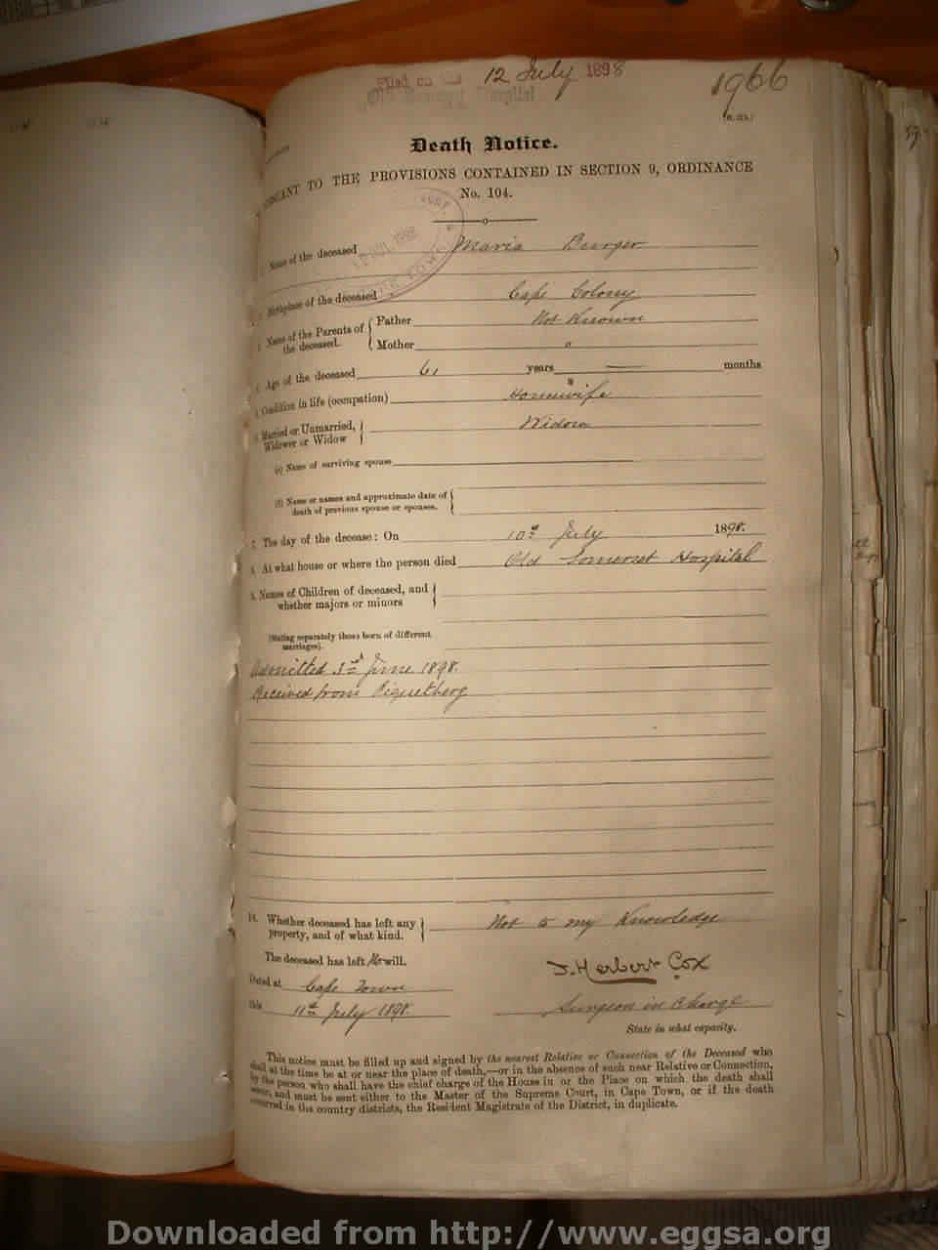 Filed on the 12 July 1898
Old Somerset Hospital
1966
Death Notice.
TO THE PROVISIONS CONTAINED IN SECTION 9, ORDINANCE
No. 104.
Name of the deceased Maria Burger
Birthplace of the deceased Cape Colony
Name of the Parents of the deceased. { Father Not Known
Mother "
Age of the deceased 61 years — months
Condition in life (occupation) Housewife
Married or Unmarried, Widower or Widow } Widow
(a) Name of surviving spouse
(b) Name or names and approximate date of
death of previous spouse or spouses. {
7. The day of the decease: On 10th July 1898.
8. At what house or where the person died Old Somerset Hospital
9. Names of Children of deceased, and
whether majors or minors }
(Stating separately those born of different
marriages).
Admitted 3rd June 1898.
Received from Piquetberg
10. Whether deceased has left any
property, and of what kind. } Not to my Knowledge
The deceased has left No will.
J. Herbert Cox
Dated at Cape Town
this 11th July 1898.
Surgeon in Charge
State in what capacity.
This notice must be filled up and signed by the nearest Relative or Connection of the Deceased who
shall at the time be at or near the place of death,—or in the absence of such near Relative or Connection,
by the person who shall have the chief charge of the House in or the Place on which the death shall
occur, and must be sent either to the Master of the Supreme Court, in Cape Town, or if the death
occurred in the country districts, the Resident Magistrate of the District, in duplicate.
Downloaded from http://www.eggsa.org